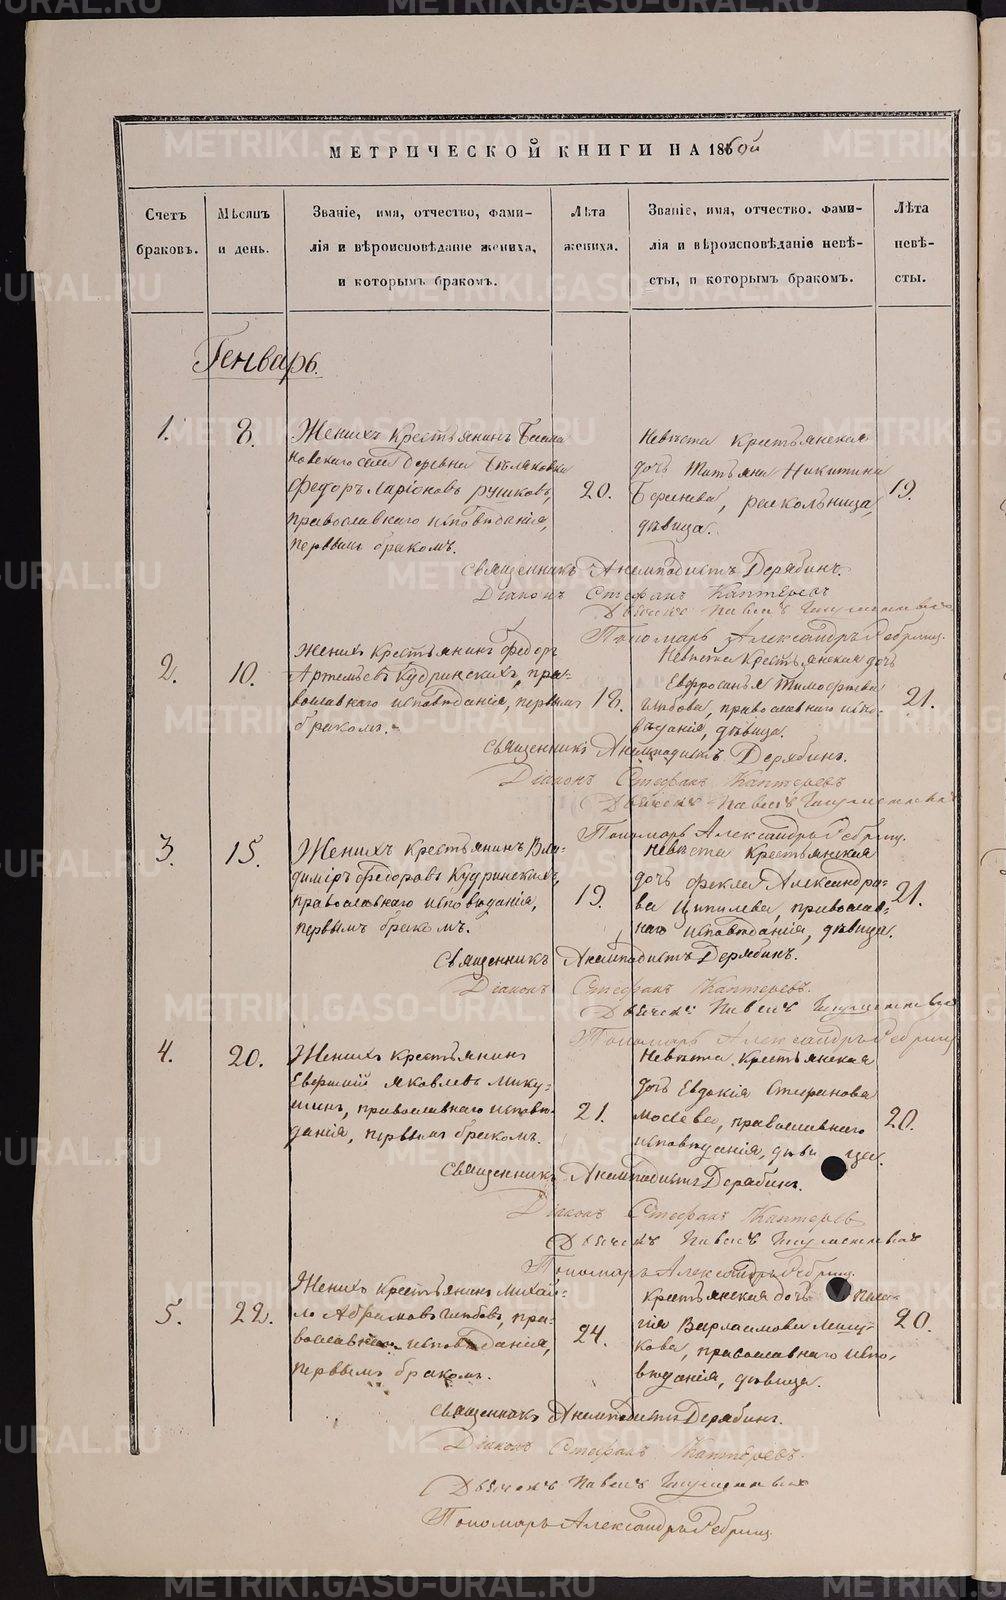 МЕТРИЧЕСКОЙ КНИГИ НА 1860й
Счетъ браковъ.
Мѣсяцъ и день.
Званіе, имя, отчество, фами-
лія и вѣроисповѣданіе жениха,
и которымъ бракомъ.
Лѣта жениха.
Званіе, имя, отчество. фами-
лія и вѣроисповѣданіе невѣ-
сты, и которымъ бракомъ.
Лѣта невѣ-
сты.
Генварь.
1.
8.
Женихъ Крестьянинъ
села деревни Бѣляковки
Федоръ Ларіоновъ
православнаго исповѣданія,
первымъ бракомъ.
20.
Невѣста крестьянская
дочь Татьяна Никитина
раскольница,
дѣвица.
19.
Священникъ Анемподистъ Дерябинъ.
Діаконъ Стефанъ Каптеревъ
Дьячекъ Павелъ
Пономарь Александръ
2.
10.
Женихъ крестьянинъ Федоръ
Артемьевъ Кудринскихъ, пра-
вославнаго исповѣданія, первымъ
бракомъ.
18.
Невѣста Крестьянская дочь
Евфросинья Тимофеева
Глѣбова, православнаго испо-
вѣданія, дѣвица.
21.
Священникъ Анемподистъ Дерябинъ.
Діаконъ Стефанъ Каптеревъ
Дьячекъ Павелъ
Пономарь Александръ
3.
15.
Женихъ крестьянинъ Вла-
диміръ Федоровъ Кудринскихъ,
православнаго исповѣданія,
первымъ бракомъ.
19.
Невѣста Крестьянская
дочь Фекла Александро-
ва Ципилева, православ-
наго исповѣданія, дѣвица.
21.
Священникъ Анемподистъ Дерябинъ.
Діаконъ Стефанъ Каптеревъ.
Дьячекъ Павелъ
Пономарь Александръ
4.
20.
Женихъ крестьянинъ
Яковлевъ Мику-
шинъ, православнаго исповѣ-
данія, первымъ бракомъ.
21.
Невѣста крестьянская
дочь Евдокія Стефанова
православнаго
исповѣданія, дѣвица.
20.
Священникъ Анемподистъ Дерябинъ.
Діаконъ Стефанъ Каптеревъ
Дьячекъ Павелъ
Пономарь Александръ
5.
22.
Женихъ крестьянинъ Михай-
ло Абрамовъ Глѣбовъ, пра-
вославнаго исповѣданія,
первымъ бракомъ.
24.
Крестьянская дочь
Варлаамова
православнаго испо-
вѣданія, дѣвица.
20.
Священникъ Анемподистъ Дерябинъ.
Діаконъ Стефанъ Каптеревъ.
Дьячекъ Павелъ
Пономарь Александръ
METRIKI.GASO-URAL.RU